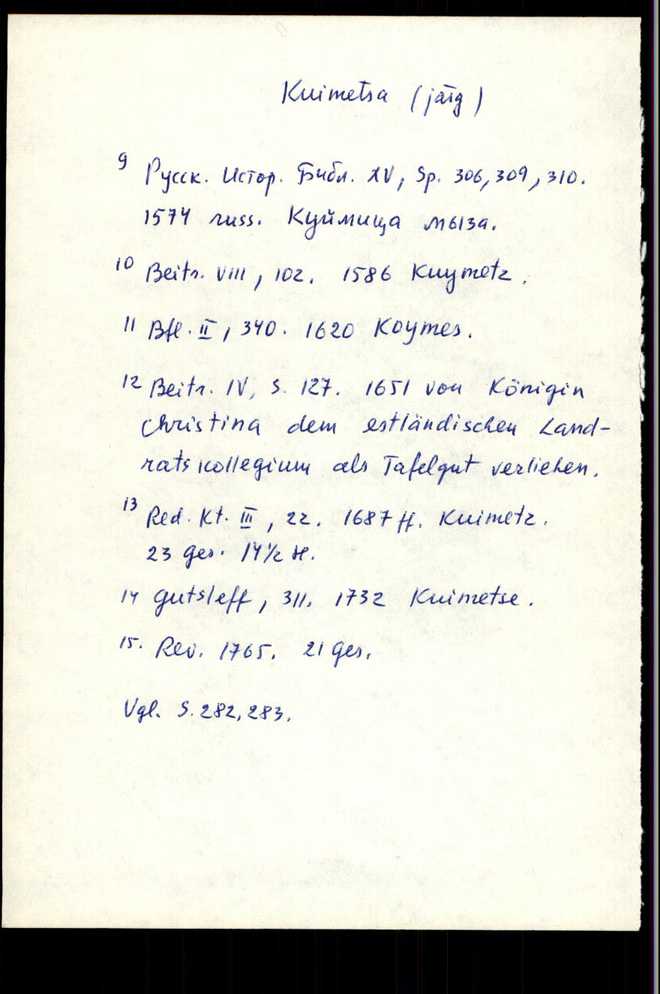 Kuimetsa (järg)
9 Русск. Истор. Библ. XV, Sp. 306, 309, 310.
1574 russ. Куймица мыза.
10 Beitr. VIII, 102. 1586 Kuymetz.
11 Bfl. II, 340. 1620 Koymes.
12 Beitr. IV, S. 127. 1651 von Königin
Christina dem estländischen Land-
ratskollegium als Tafelgut verliehen.
13 Red. Kt. III, 22. 1687 ff. Kuimetz.
23 Ges. 14 1/2 H.
14 Gutsleff, 311. 1732 Kuimetse.
15. Rev. 1765. 21 Ges.
Vgl. S. 282, 283.